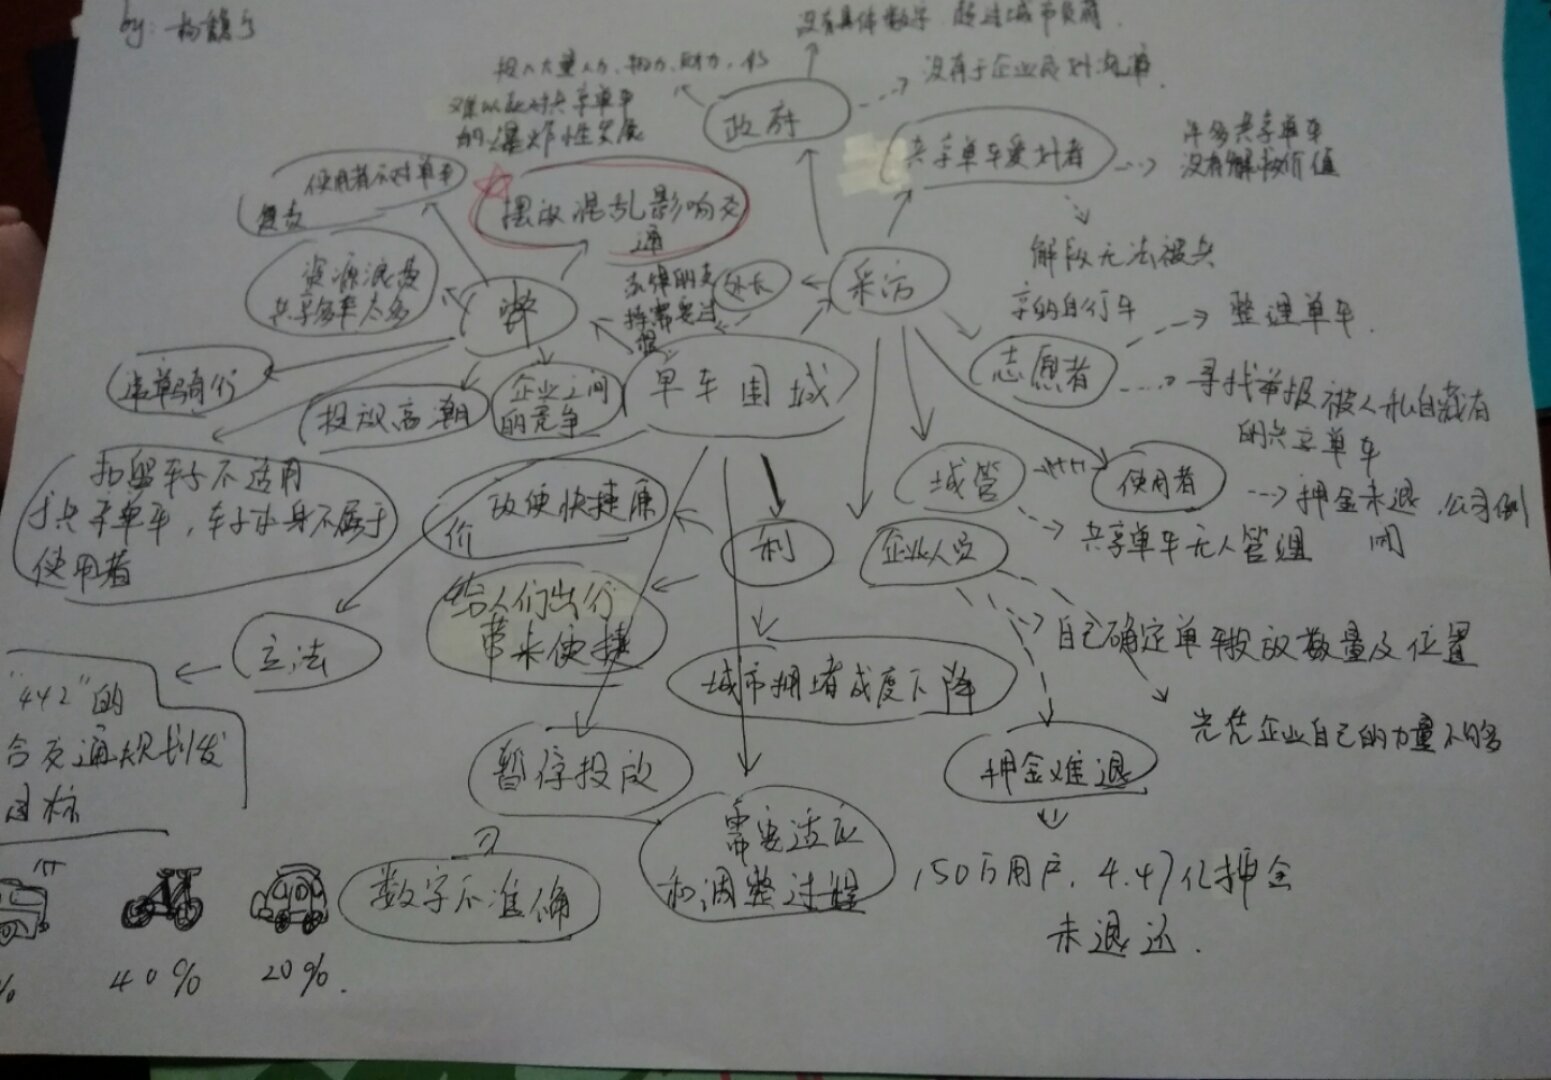 by: 杨
没有具体数字 超过城市负荷.
投入大量人力、物力、财力,
没有于企业
难以应对共享单车
的爆炸性发展
政府
共享单车爱好者
许多共享单车
没有解救价值
使用者不对单车
摆放混乱影响交
通
解救无法被共
享的自行车
资源浪费
共享单车太多
弊
市场的支
持需要
处长
采访
志愿者
整理单车.
寻找举报被人私自藏有
的共享单车
单骑行
投放高潮
企业之间
的竞争
单车围城
城管
使用者
押金未退,公司倒
闭
共享单车无人管理
扣留车子不适用
于共享单车,车子本身不属于
使用者
方便快捷廉
价
利
企业人员
自己确定单车投放数量及位置
光凭企业自己的力量不够
给人们出行
带来便捷
立法
城市拥堵成度下降
"442"的
合交通规划发
目标
暂停投放
押金难退
需要适应
和调整过程
150万用户, 4.47亿押金
未退还.
数字不准确
% 40% 20%.